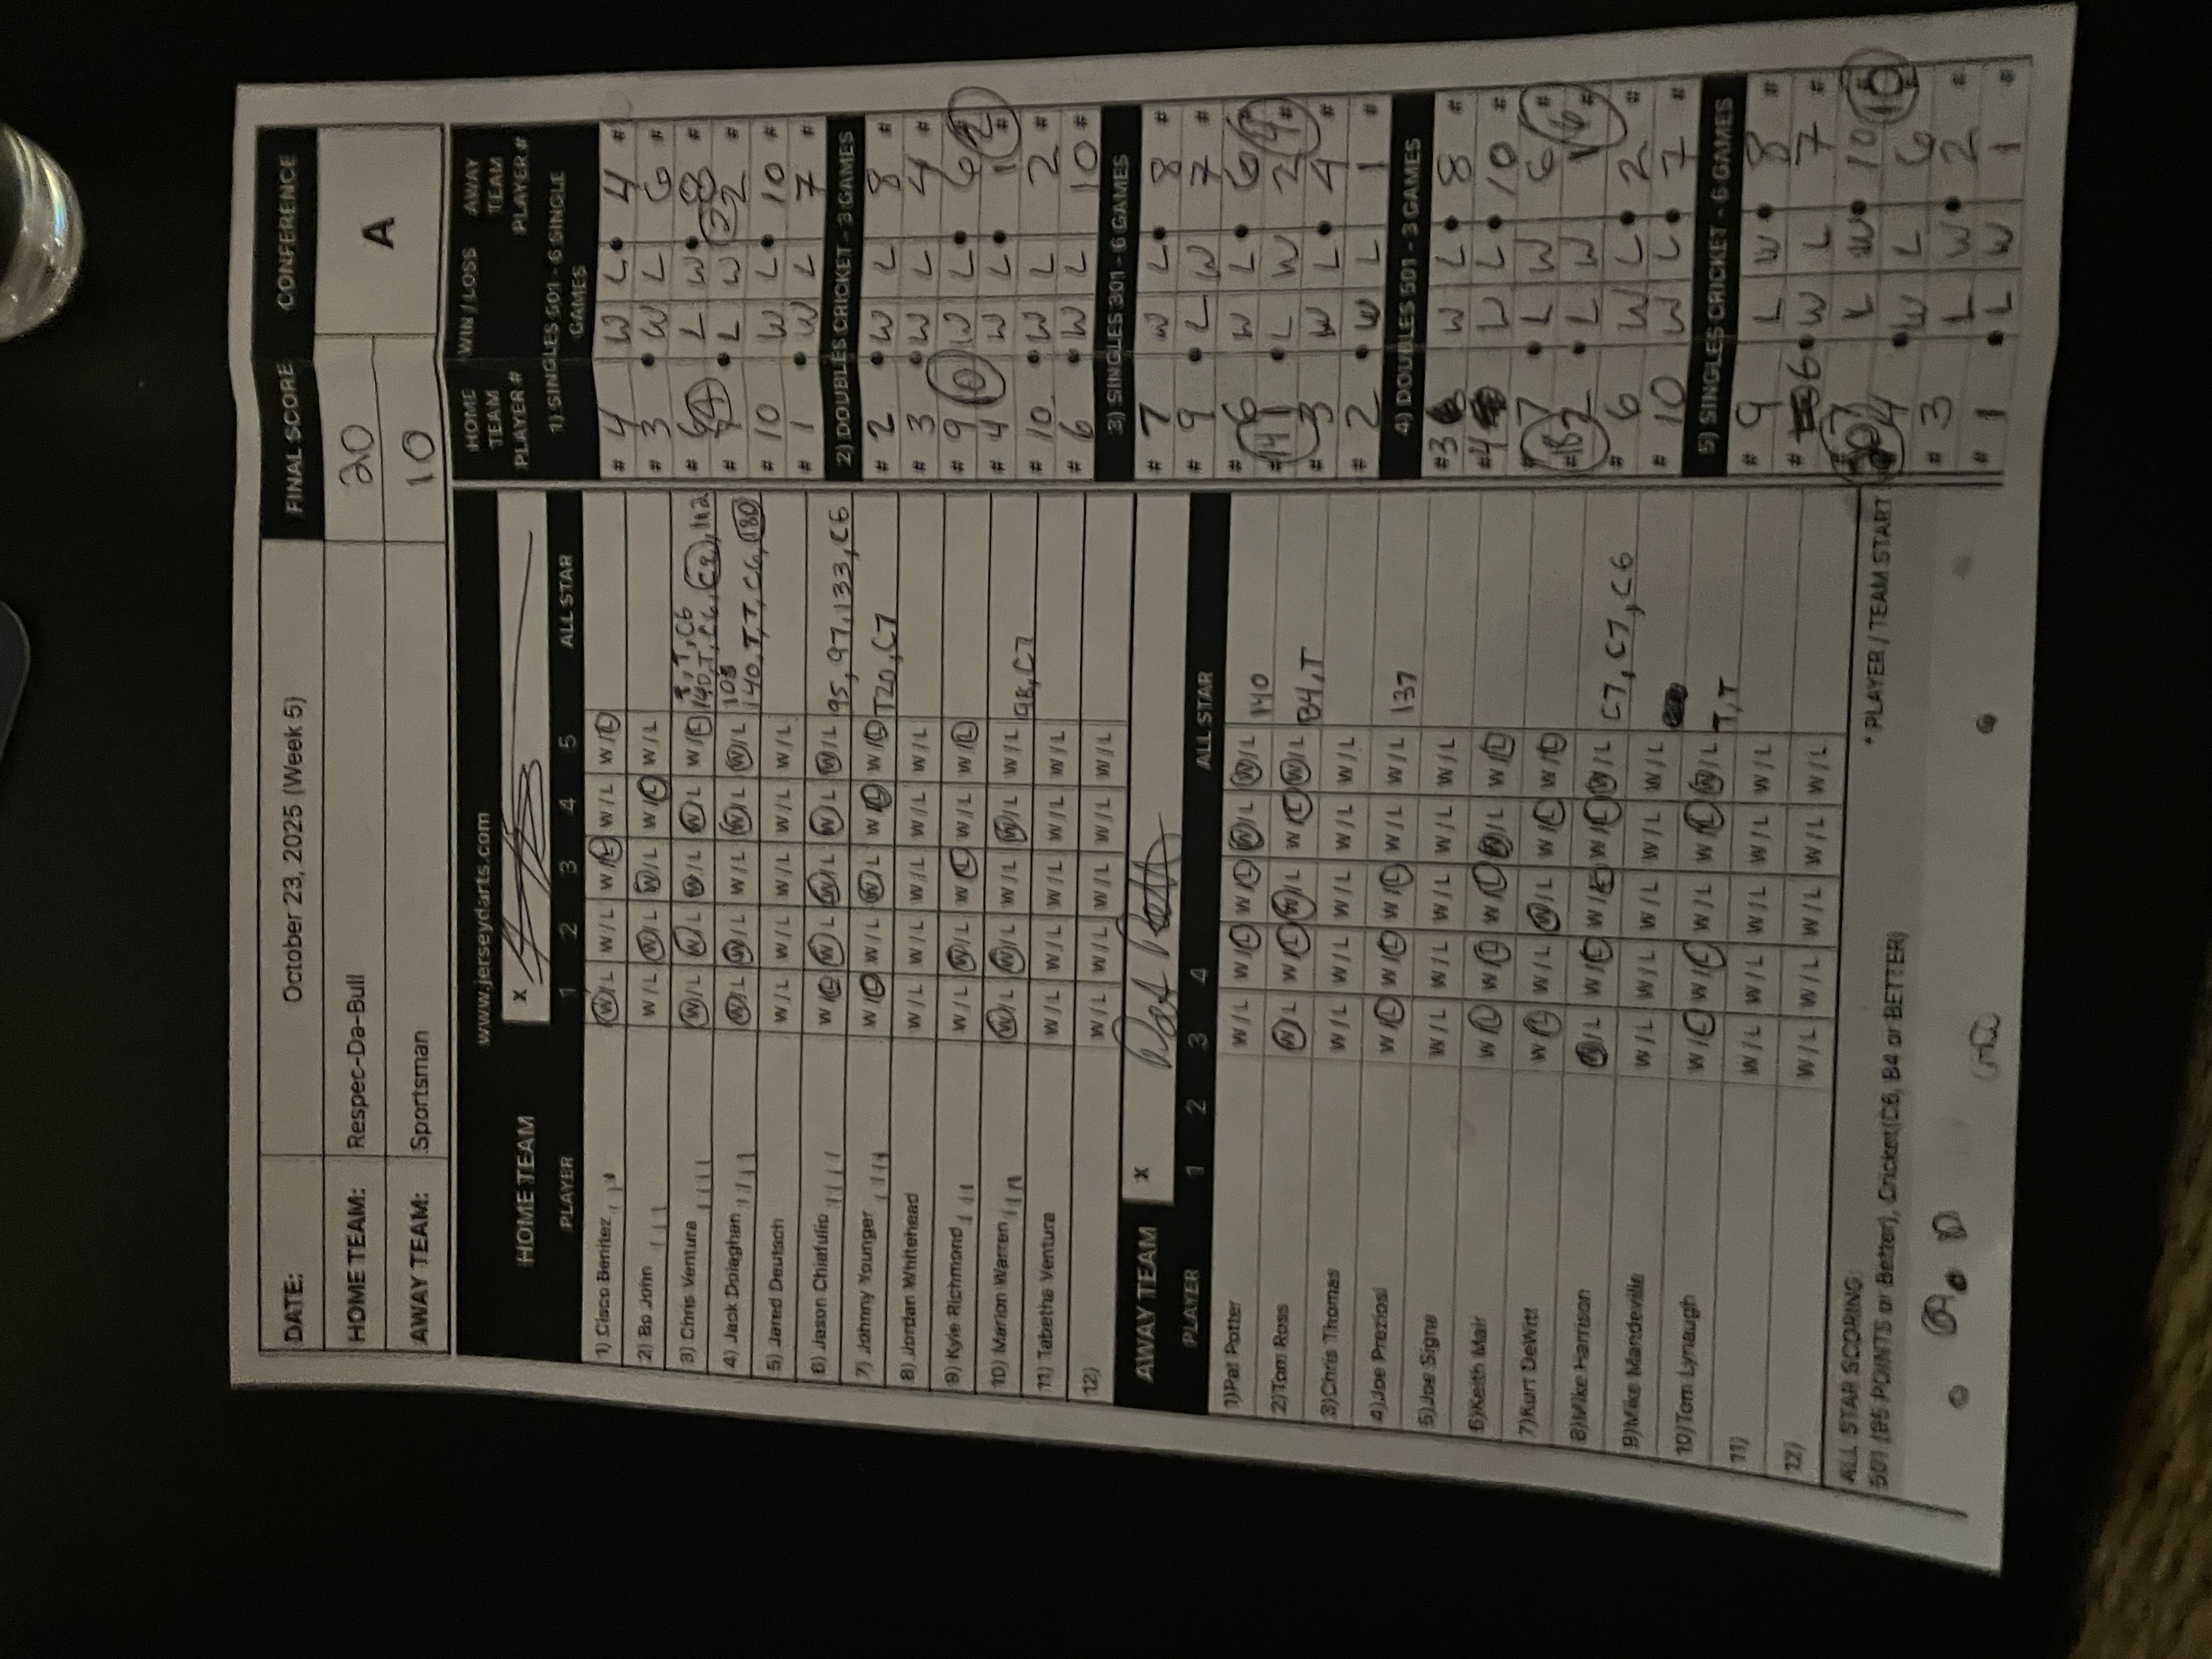 DATE: October 23, 2025 (Week 5) FINAL SCORE CONFERENCE
HOME TEAM: Respec-Da-Bull 20 A
AWAY TEAM: Sportsman 10
www.jerseydarts.com
HOME TEAM x
PLAYER 1 2 3 4 5 ALL STAR
1) Cisco Benitez W/L W/L W/L W/L W/L
2) Bo John W/L W/L W/L W/L W/L
3) Chris Ventura W/L W/L W/L W/L W/L T, T, C6 140, T, T, C6, 112
4) Jack Dolaghan W/L W/L W/L W/L W/L 108 140, T, T, C6, 180
5) Jared Deutsch W/L W/L W/L W/L W/L
6) Jason Chiafullo W/L W/L W/L W/L W/L 95, 97, 133, C6
7) Johnny Younger W/L W/L W/L W/L W/L T20, C7
8) Jordan Whitehead W/L W/L W/L W/L W/L
9) Kyle Richmond W/L W/L W/L W/L W/L
10) Marlon Warren W/L W/L W/L W/L W/L 98, C7
11) Tabetha Ventura W/L W/L W/L W/L W/L
12) W/L W/L W/L W/L W/L
AWAY TEAM x
PLAYER 1 2 3 4 ALL STAR
1)Pat Potter W/L W/L W/L W/L W/L 140
2)Tom Ross W/L W/L W/L W/L W/L B4, T
3)Chris Thomas W/L W/L W/L W/L W/L
4)Joe Preziosi W/L W/L W/L W/L W/L 137
5)Joe Signa W/L W/L W/L W/L W/L
6)Keith Mair W/L W/L W/L W/L W/L
7)Kurt DeWitt W/L W/L W/L W/L W/L
8)Mike Harrison W/L W/L W/L W/L W/L C7, C7, C6
9)Mike Mandeville W/L W/L W/L W/L W/L
10)Tom Lynaugh W/L W/L W/L W/L W/L T, T
11) W/L W/L W/L W/L W/L
12) W/L W/L W/L W/L W/L
ALL STAR SCORING:
501 (95 POINTS or Better), Cricket(C6, B4 or BETTER) * PLAYER / TEAM START
HOME TEAM PLAYER # WIN / LOSS AWAY TEAM PLAYER #
1) SINGLES 501 - 6 SINGLE GAMES
# 4 W L 4 #
# 3 W L 6 #
# 6 L W 8 #
# L W 2 #
# 10 W L 10 #
# 1 W L 7 #
2) DOUBLES CRICKET - 3 GAMES
# 2 W L 8 #
# 3 W L 4 #
# 9 W L 6 #
# 4 W L 1 #
# 10 W L 2 #
# 6 W L 10 #
3) SINGLES 301 - 6 GAMES
# 7 W L 8 #
# 9 L W 7 #
# 6 W L 6 #
# 1 L W 2 #
# 3 W L 4 #
# 2 W L 1 #
4) DOUBLES 501 - 3 GAMES
# 3 W L 8 #
# 4 W L 10 #
# 7 L W 6 #
# 2 L W 1 #
# 6 W L 2 #
# 10 W L 7 #
5) SINGLES CRICKET - 6 GAMES
# 9 L W 8 #
# 6 W L 7 #
# 7 L W 10 #
# 4 W L 6 #
# 3 L W 2 #
# 1 L W 1 #